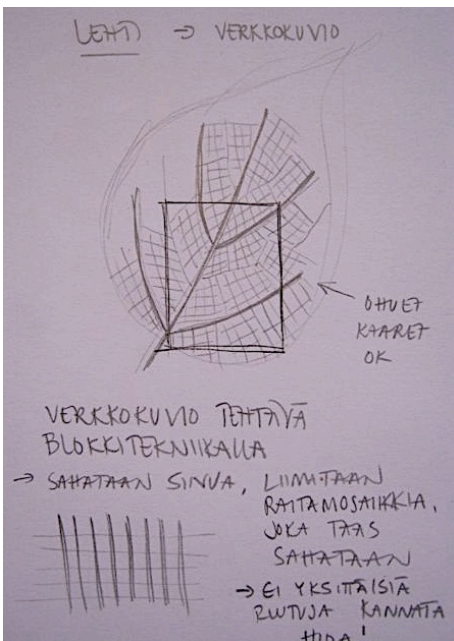 LEHTI → VERKKOKUVIO
OHUET
KAARET
OK
VERKKOKUVIO TEHTÄVÄ
BLOKKITEKNIIKALLA
→ SAHATAAN SINUA, LIIMITAAN
RAITAMOSAIIKKIA,
JOKA TAAS
SAHATAAN
→ EI YKSITTÄISIÄ
RUUTUJA KANNATA